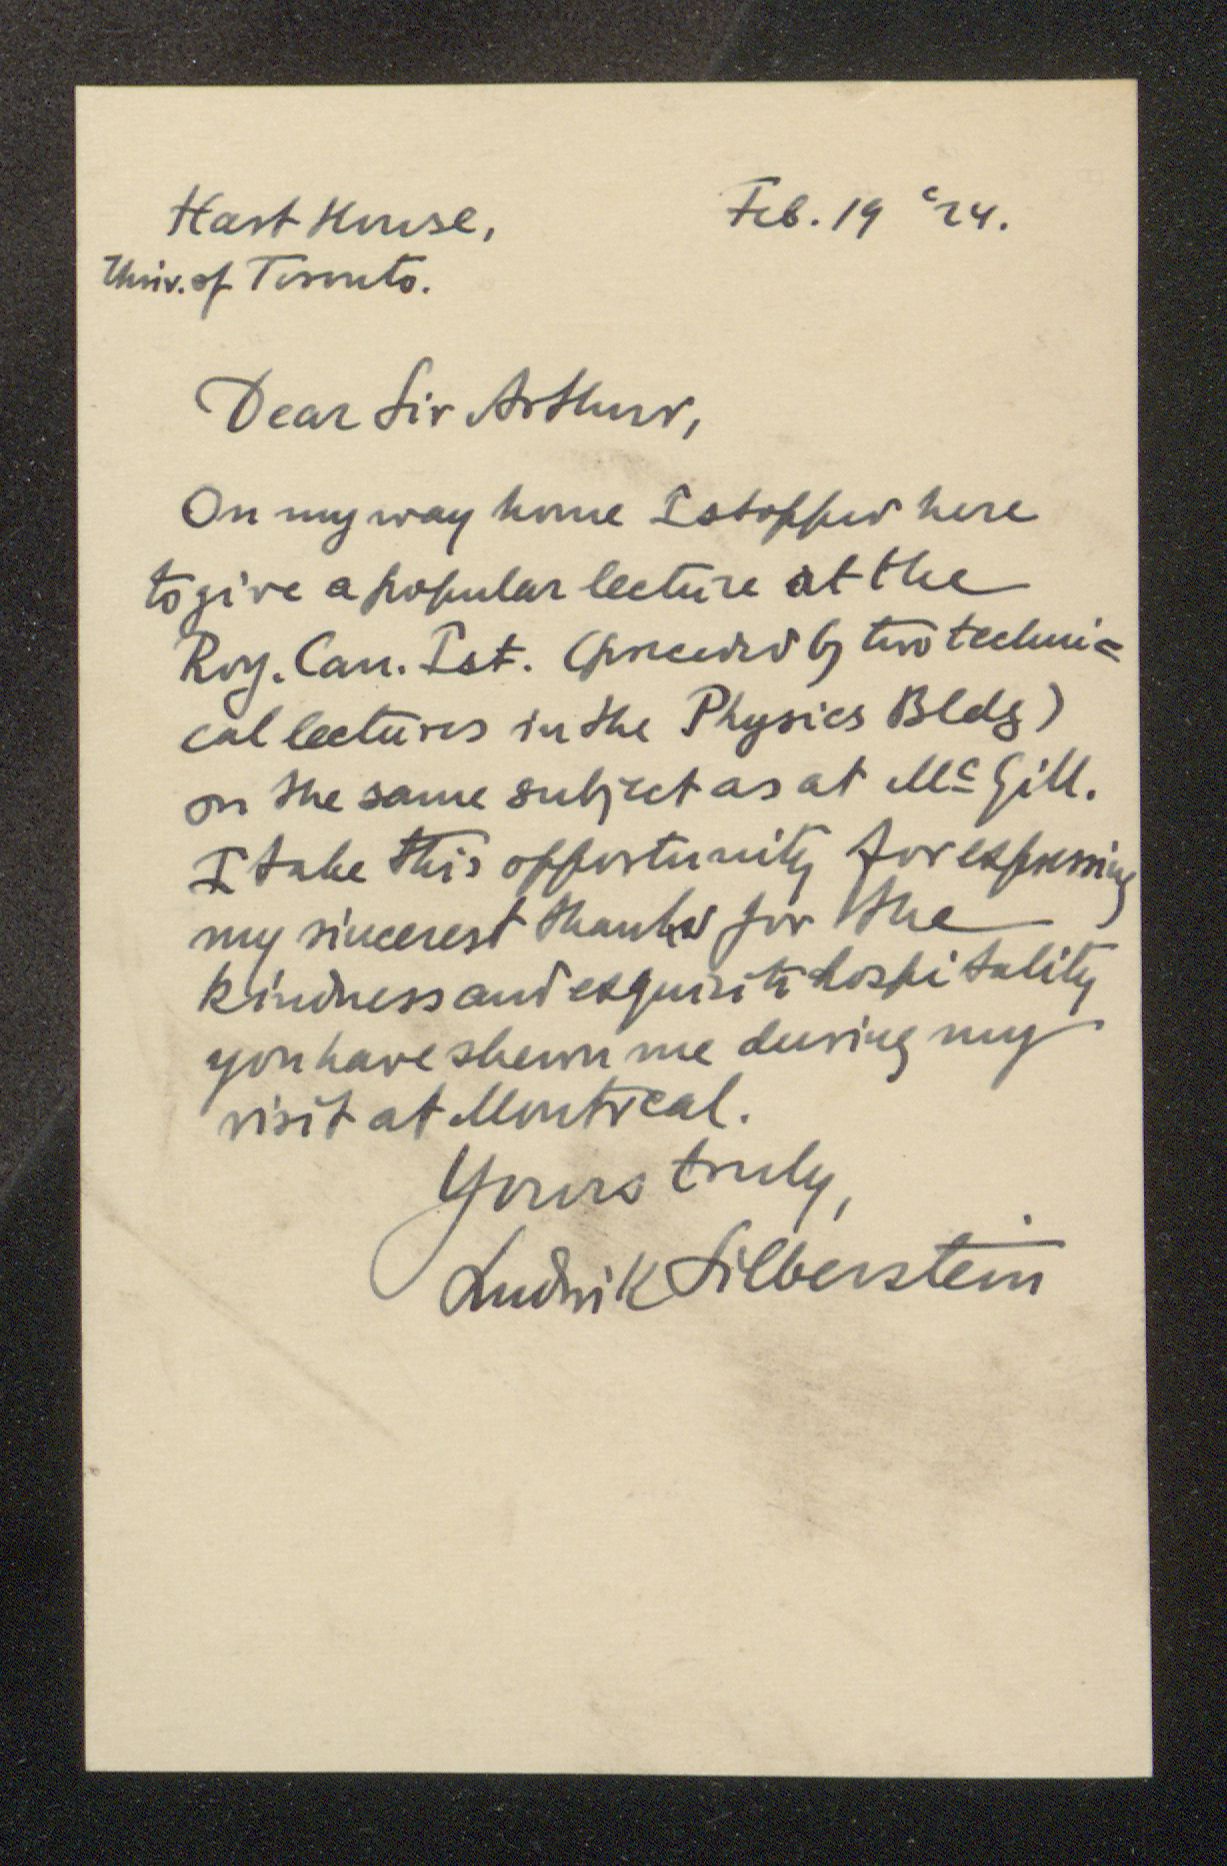 Hart House,
Feb. 19 '24.
Univ. of Toronto.
Dear Sir Arthur,
On my way home I stopped here
to give a popular lecture at the
Roy. Can. Ist. (preceded by two techni=
cal lectures in the Physics Bldg)
on the same subject as at McGill.
I take this opportunity for expressing
my sincerest thanks for the
kindness and exquisite hospitality
you have shewn me during my
visit at Montreal.
Yours truly,
Ludwik Silberstein